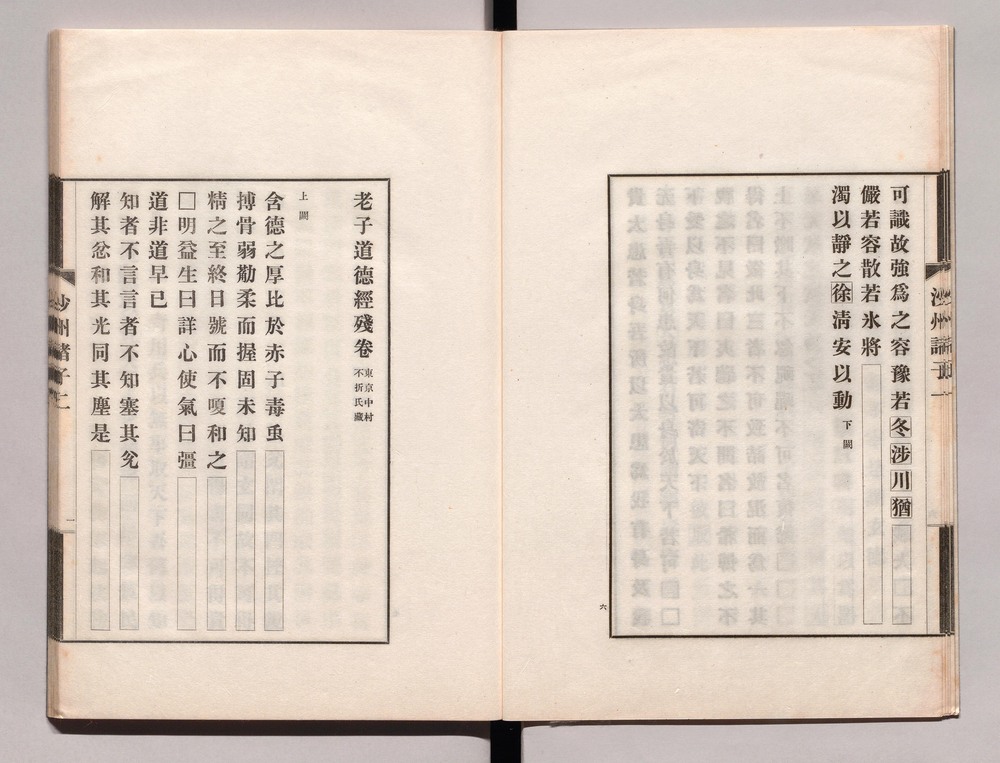 可識故強爲之容豫若冬涉川猶
儼若容散若氷將
濁以靜之徐淸安以動 下闕
六
老子道德經殘卷 東京中村不折氏藏
上闕
含德之厚比於赤子毒䖝
搏骨弱勌柔而握固未知
精之至終日號而不嗄和之
□明益生曰詳心使氣曰彊
道非道早已
知者不言言者不知塞其兊
解其忿和其光同其塵是